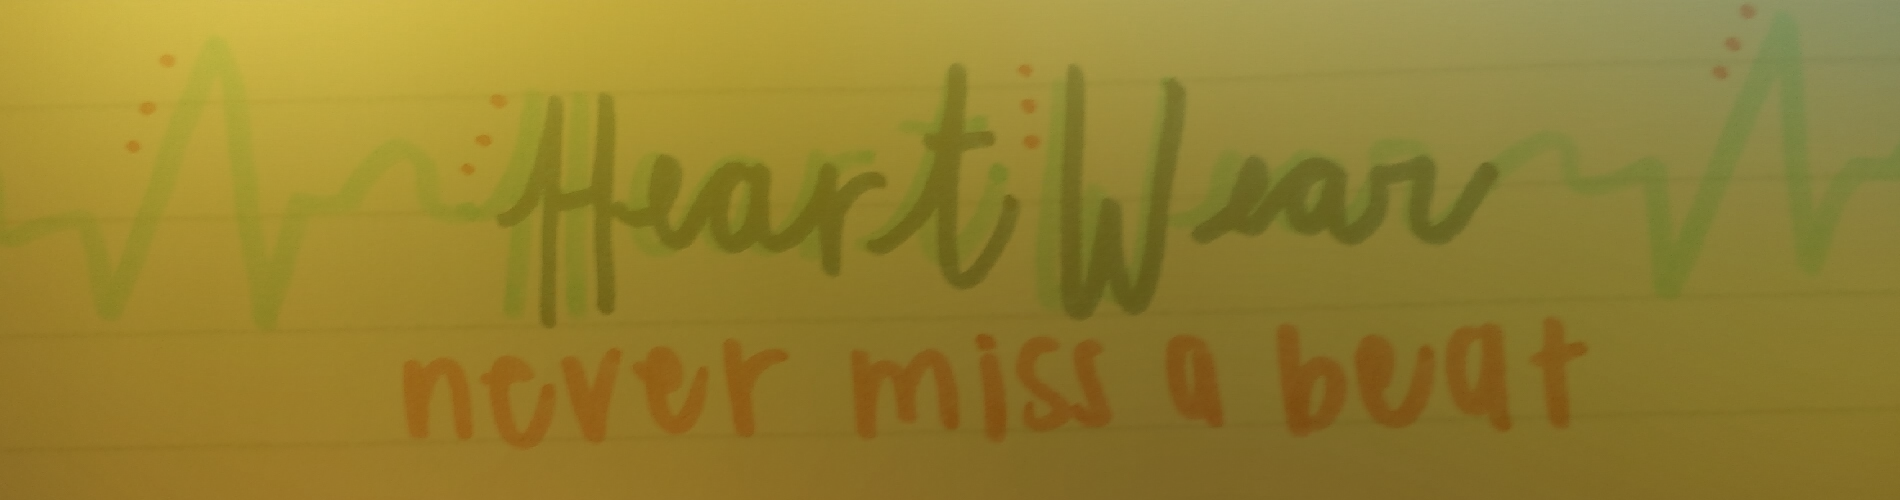 Heart Wear
never miss a beat